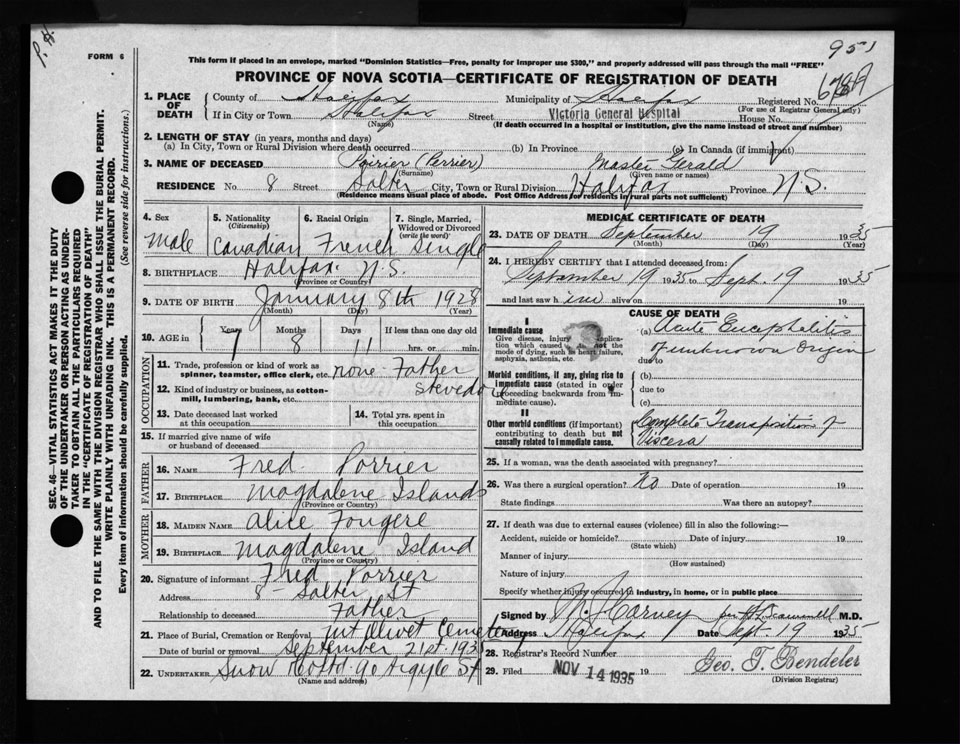 P. H.
951
FORM 6
This form if placed in an envelope, marked "Dominion Statistics—Free, penalty for improper use $300," and properly addressed will pass through the mail "FREE"
PROVINCE OF NOVA SCOTIA—CERTIFICATE OF REGISTRATION OF DEATH
1. PLACE OF DEATH County of Halifax Municipality of Halifax Registered No.
(For use of Registrar General only)
If in City or Town Halifax Street Victoria General Hospital House No.
(Name) (If death occurred in a hospital or institution, give the name instead of street and number)
2. LENGTH OF STAY (in years, months and days)
(a) In City, Town or Rural Division where death occurred (b) In Province (c) In Canada (if immigrant)
3. NAME OF DECEASED Poirier (Perrier) Master Gerald
(Surname) (Given name or names)
RESIDENCE No. 8 Street Salter City, Town or Rural Division Halifax Province N.S.
(Residence means usual place of abode. Post Office Address for residents in rural parts not sufficient)
4. Sex Male
5. Nationality (Citizenship) Canadian
6. Racial Origin French
7. Single, Married, Widowed or Divorced (write the word) Single
8. BIRTHPLACE Halifax N.S.
(Province or Country)
9. DATE OF BIRTH January 8th 1928
(Month) (Day) (Year)
10. AGE in Years 7 Months 8 Days 11 If less than one day old
hrs. or min.
OCCUPATION
11. Trade, profession or kind of work as spinner, teamster, office clerk, etc. none - Father
12. Kind of industry or business, as cotton-mill, lumbering, bank, etc. Stevedore
13. Date deceased last worked at this occupation
14. Total yrs. spent in this occupation
15. If married give name of wife or husband of deceased
FATHER
16. NAME Fred Porrier
17. BIRTHPLACE Magdalene Islands
(Province or Country)
MOTHER
18. MAIDEN NAME Alice Fougere
19. BIRTHPLACE Magdalene Island
(Province or Country)
20. Signature of informant Fred Porrier
Address 8 - Salter St
Relationship to deceased Father
21. Place of Burial, Cremation or Removal Mt Olivet Cemetery
Date of burial or removal September 21st 1935
22. UNDERTAKER Snow Co Ltd 90 Argyle St
(Name and address)
MEDICAL CERTIFICATE OF DEATH
23. DATE OF DEATH September 19 1935
(Month) (Day) (Year)
24. I HEREBY CERTIFY that I attended deceased from:
September 19 1935 to Sept. 19 1935
and last saw him alive on 19
CAUSE OF DEATH
I
Immediate cause
Give disease, injury or complication which caused death, not the mode of dying, such as heart failure, asphyxia, asthenia, etc.
(a) Acute Encephalitis
of unknown Origin
due to
Morbid conditions, if any, giving rise to immediate cause (stated in order proceeding backwards from immediate cause).
(b)
due to
(c)
II
Other morbid conditions (if important) contributing to death but not causally related to immediate cause.
Complete Transposition of
Viscera
25. If a woman, was the death associated with pregnancy?
26. Was there a surgical operation? No Date of operation 19
State findings Was there an autopsy?
27. If death was due to external causes (violence) fill in also the following:—
Accident, suicide or homicide? Date of injury 19
(State which)
Manner of injury
(How sustained)
Nature of injury
Specify whether injury occurred in industry, in home, or in public place
Signed by M.D.
Address Halifax Date Sept. 19 1935
28. Registrar's Record Number
29. Filed NOV 14 1935 19 Geo. T. Bendeler
(Division Registrar)
SEC. 46—VITAL STATISTICS ACT MAKES IT THE DUTY
OF THE UNDERTAKER OR PERSON ACTING AS UNDER-
TAKER TO OBTAIN ALL THE PARTICULARS REQUIRED
IN THE "CERTIFICATE OF REGISTRATION OF DEATH"
AND TO FILE THE SAME WITH THE DIVISION REGISTRAR WHO SHALL ISSUE THE BURIAL PERMIT.
WRITE PLAINLY WITH UNFADING INK. THIS IS A PERMANENT RECORD.
Every item of information should be carefully supplied. (See reverse side for instructions.)